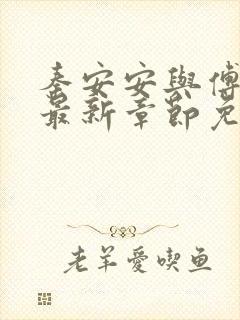 秦安安與傅
最新章節免
老羊愛喫鱼